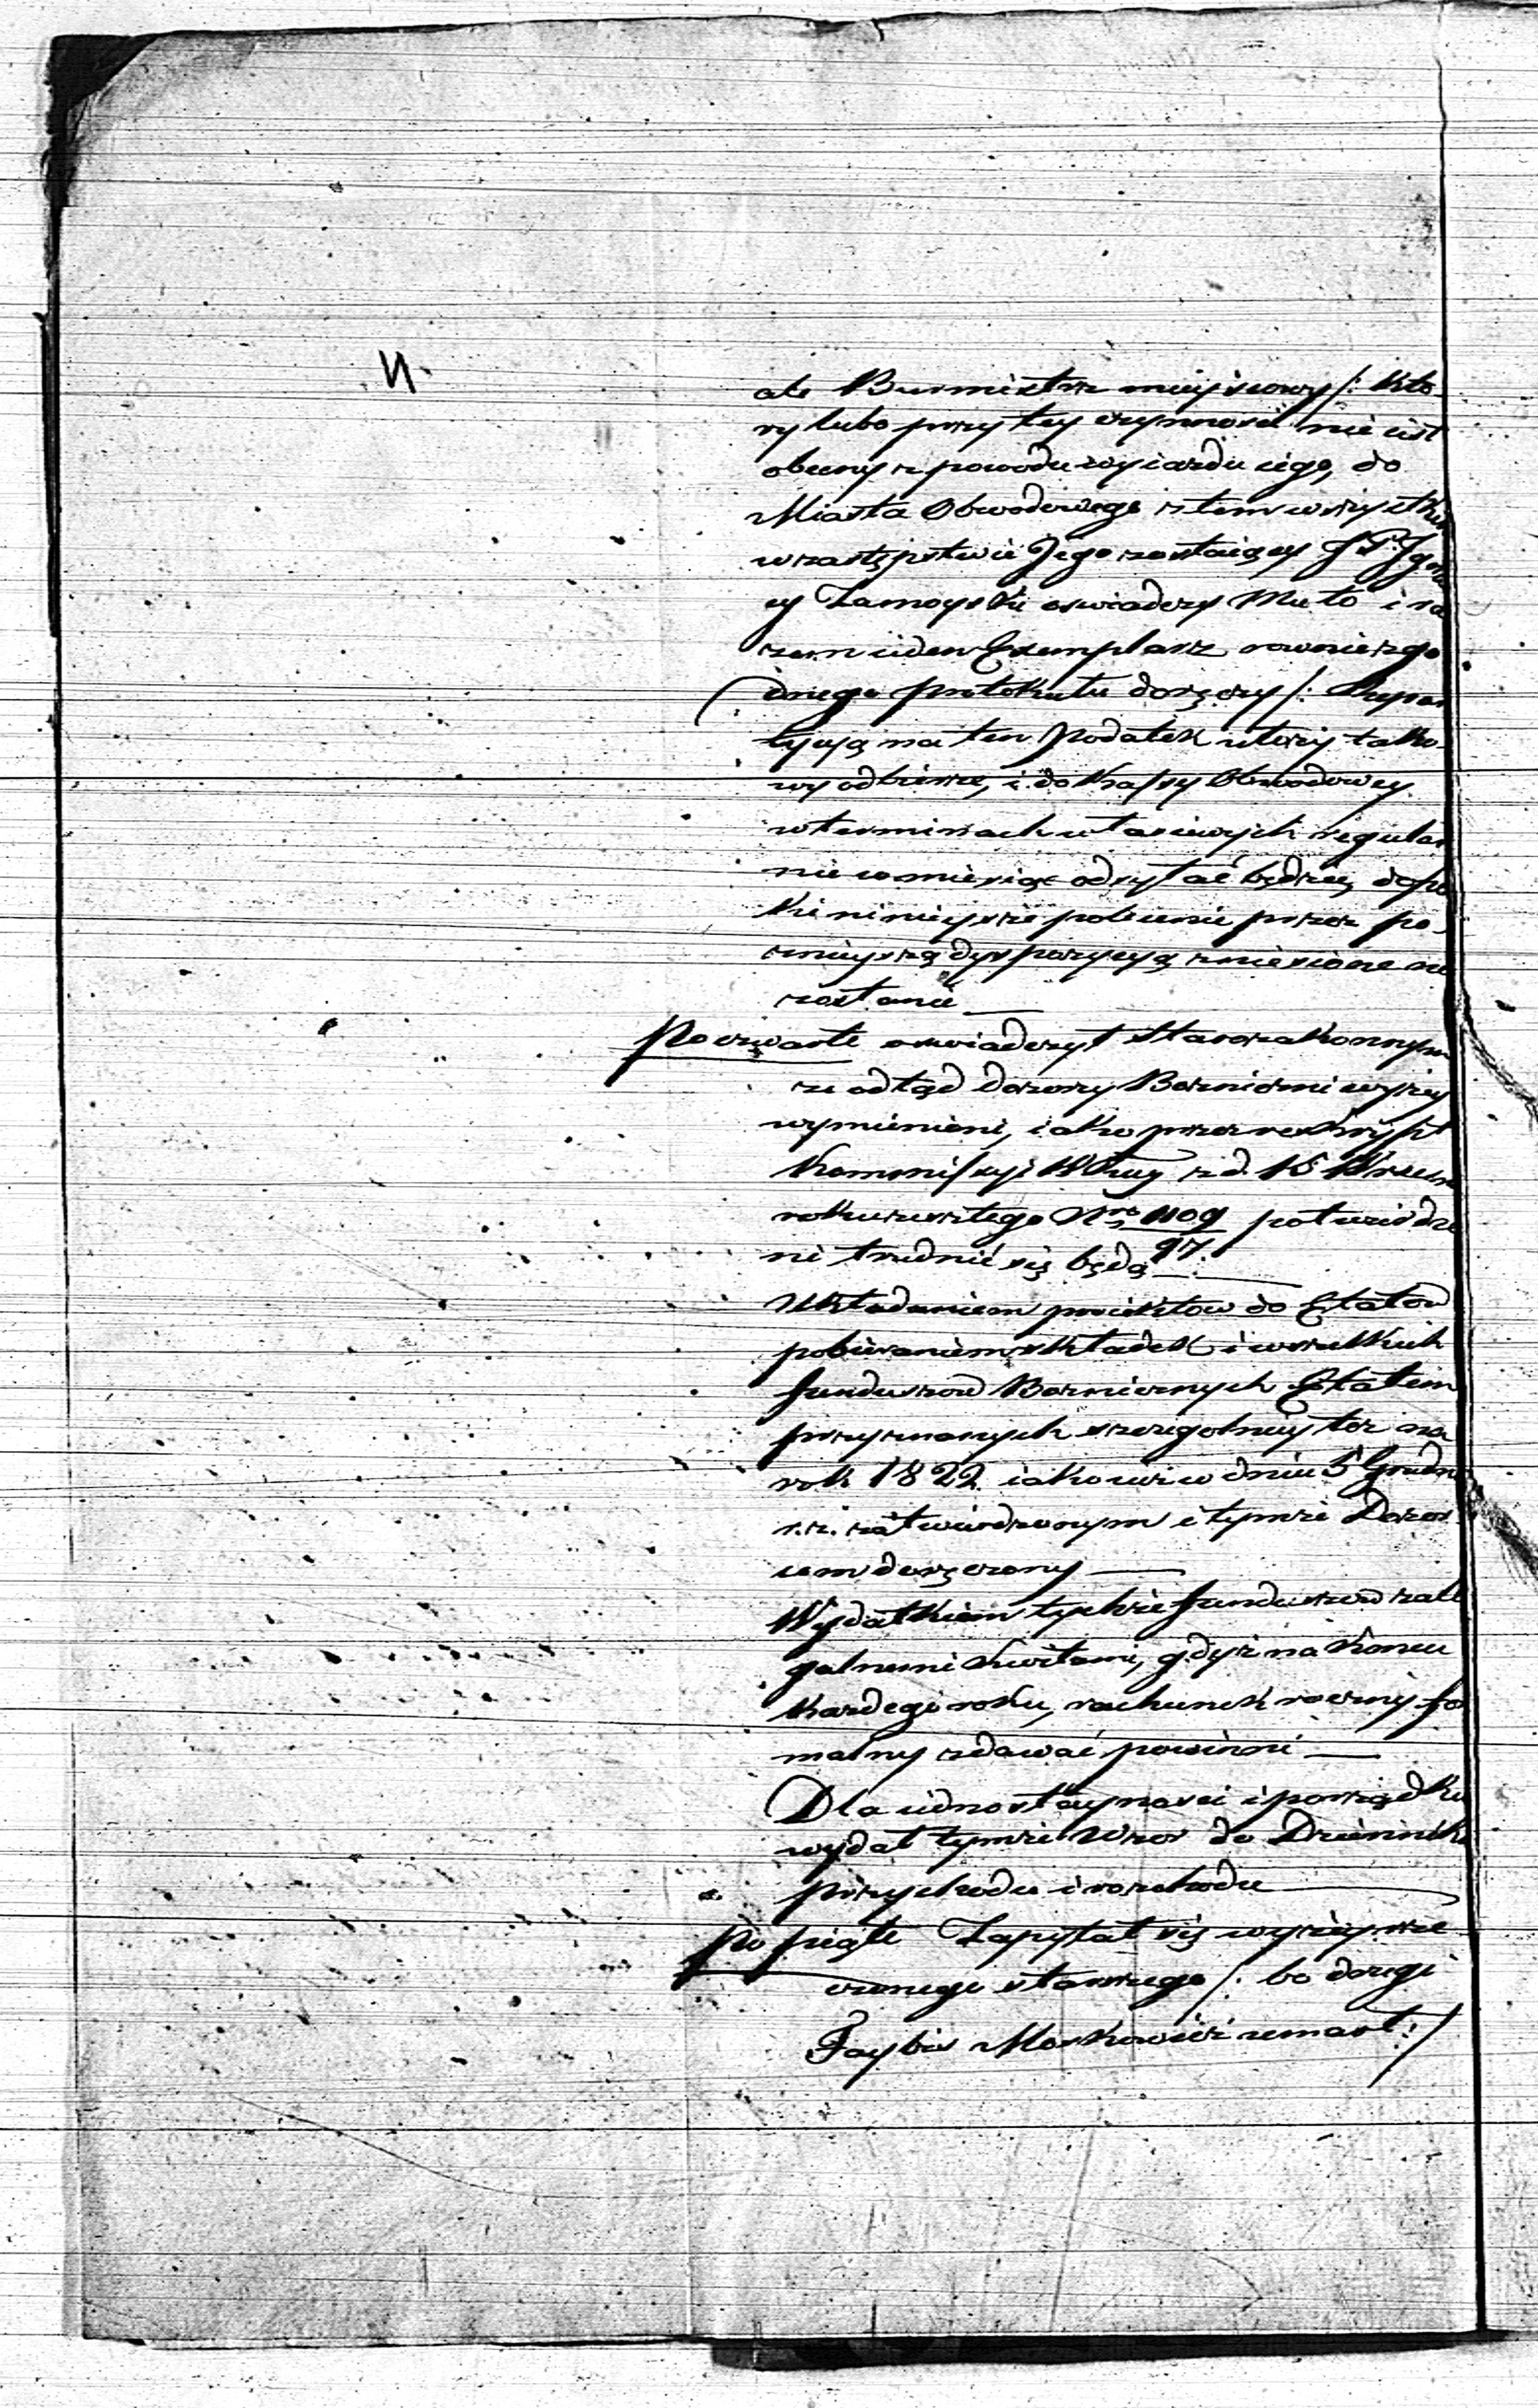 ale Burmistrz mieyscowy /: kto-
ry lubo przy tey czynnosci nie iest
obecny z powodu wyiazdu iego, do
Miasta Obwodowego z tem wszystkim
w zastępstwie Jego zostaiący J P. Igna
cy Zamoyski oswiadczy Mu to i ra
zem ieden Exemplarz
protokułu doręczy /: Repar
tycyą na ten Podatek utoży tako-
wy odbierze, i do Kassy Obwodowey
w terminach własciwych regular
nie co miesiąc odsyłać będzie, dopo
ki ninieysze polecenie przez po-
znieyszą dyspozycyą zniesione nie
zostanie
Po czwarte oswiadczył Starozakonnym
ze odtąd Dozorcy Bozniczni wyzey
wymienieni, iako przez reskrypt
Kommissyi WKżey z d. 15 Wrzesn
roku zeszłego Nro 1109/97. potwierdze
ni trudnić się będą
Układaniem proiektow do Etatow
pobieraniem składek i wszelkich
funduszow Boznicznych Etatem
przyznanych szczegolniey tez na
rok 1822 iakowe w dniu 5 Grudn
r. z. zatwierdzonym i tymze Dozor
com doręczony
Wydatkiem tychze funduszow za le
galnemi kwitami, gdyz na koncu
kazdego roku, rachunek roczny for
malny zdawać powinni
Dla iednostaynosci i porządku
wydał tymze Wzor do Dziennika
przychodu i rozchodu
Po piąte Zapytał się wyzey
starszego /: bo drugi
Faybis Moskowicz umarł :/